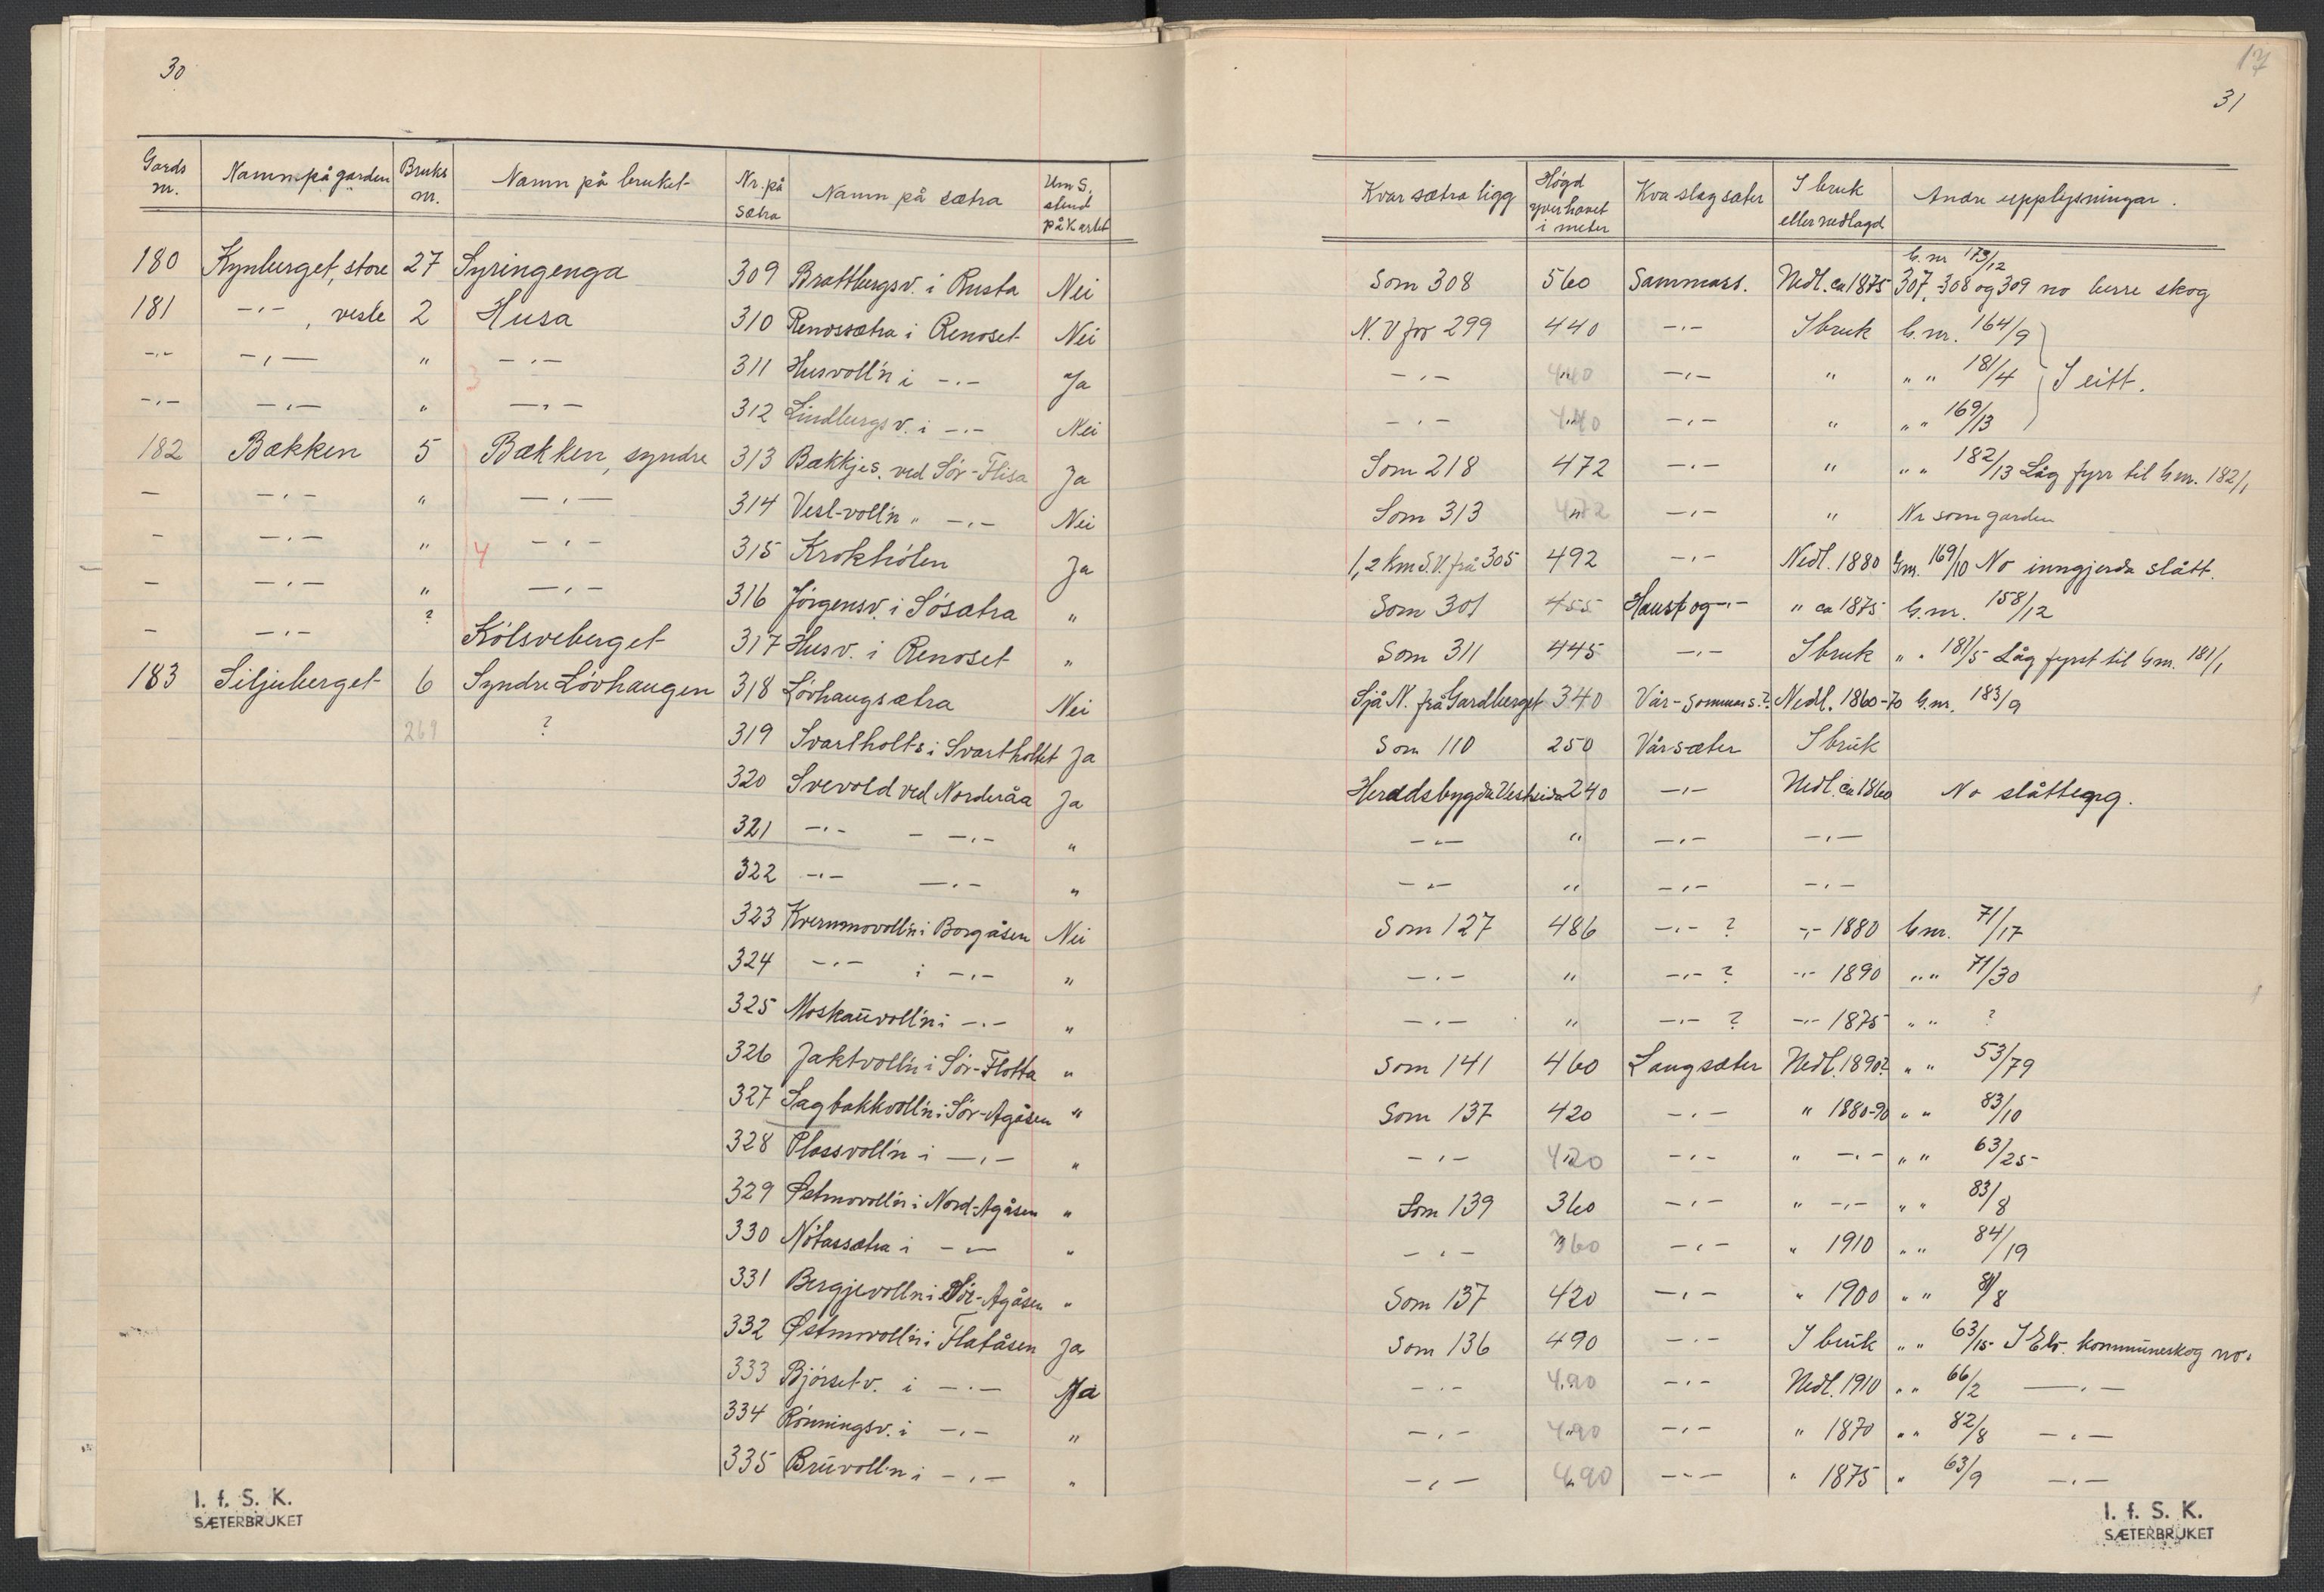 30
Gards nr. | Namn på garden | Bruks nr. | Namn på bruket | Nr. på sætra | Namn på sætra | Um S. stend på kartet
180 | Kynberget, store | 27 | Syringenga | 309 | Brattbergsv. i Rusta | Nei
181 | -"- , vesle | 2 | Husa | 310 | Renossætra i Renoset | Nei
-"- | -"- | " | -"- | 311 | Husvoll'n i -"- | Ja
3
-"- | -"- | " | -"- | 312 | Lindbergsv. i -"- | Nei
182 | Bækken | 5 | Bækken, syndre | 313 | Bækkjes. ved Sør-Flisa | Ja
- | -"- | " | -"- | 314 | Vesl-voll'n " -"- | Nei
- | -"- | " | -"- | 315 | Krokhólen | Ja
4
- | -"- | " | -"- | 316 | Jörgensv. i Sósætra | "
- | -"- | ? | Kólsveberget | 317 | Husv. i Renoset | "
183 | Siljuberget | 6 | Syndre Lóvhaugen | 318 | Lóvhaugsætra | Nei
269 | ? | 319 | Svartholts i Svartholtet | Ja
320 | Svevold ved Norderåa | Ja
321 | -"- - -"- | "
322 | -"- -"- | "
323 | Kvernmovoll'n i Borgåsen | Nei
324 | -"- i -"- | "
325 | Moskauvoll'n i -"- | "
326 | Jaktvoll'n i Sór-Flotta | "
327 | Sagbakkvoll'n i Sór-Agåsen | "
328 | Plassvoll'n i -"- | "
329 | Østmovoll'n i Nord-Agåsen | "
330 | Nótassætra i -"- | "
331 | Bergjevoll'n i Sór-Agåsen | "
332 | Østmovoll'n i Flatåsen | Ja
333 | Bjórsetv. i -"- | Ja
334 | Rónningsv. i -"- | "
335 | Bruvoll'n i -"- | "
I. f. S. K.
SÆTERBRUKET
17
31
Kvar sætra ligg | Høgd yver havet i meter | Kva slag sæter | I bruk eller nedlagd | Andre upplysningar.
G.nr 173/12
Som 308 | 560 | Sammars. | Nedl. ca 1875 | 307, 308 og 309 no berre skog
N.V for 299 | 440 | -"- | I bruk | G.nr. 164/9
-"- | 440 | -"- | " | " " 181/4 } I eitt.
-"- | 440 | -"- | " | " " 169/13
Som 218 | 472 | -"- | " | " " 182/13 Låg fyrr til G.nr. 182/1
Som 313 | 472 | -"- | " | Nr som garden
1,2 km S.V. frå 305 | 492 | -"- | Nedl. 1880 | G.nr. 169/10 No inngjerda slått.
Som 301 | 455 | Haust og -"- | " ca 1875 | G.nr. 158/12
Som 311 | 445 | -"- | I bruk | " " 181/5 Låg fyrst til G.nr. 181/1
Sjå N. frå Gardberget | 340 | Vår-Sommers.? | Nedl. 1860-70 | G.nr. 183/9
Som 110 | 250 | Vårsæter | I bruk
Heradsbygda Vestsida | 240 | -"- | Nedl. ca 1860 | No slåtteeng.
-"- | " | -"- | -"-
-"- | " | -"- | -"-
Som 127 | 486 | -"- ? | -"- 1880 | G.nr. 71/17
-"- | " | -"- ? | -"- 1890 | " " 71/30
-"- | " | -"- ? | -"- 1875 | " " ?
Som 141 | 460 | Langsæter | Nedl. 1890? | " " 53/79
Som 137 | 420 | -"- | " 1880-90 | " " 83/10
-"- | 420 | -"- | " -"- | " " 63/25
Som 139 | 360 | -"- | " -"- | " " 83/8
-"- | 360 | -"- | " 1910 | " " 84/19
Som 137 | 420 | -"- | " 1900 | " "
Som 136 | 490 | -"- | I bruk | " " 63/15 I Elv. kommuneskog no.
-"- | 490 | -"- | Nedl. 1910 | " " 66/2 -"-
-"- | 490 | -"- | " 1870 | " " 82/8 -"-
-"- | 490 | -"- | " 1875 | " 63/9 -"-
I. f. S. K.
SÆTERBRUKET